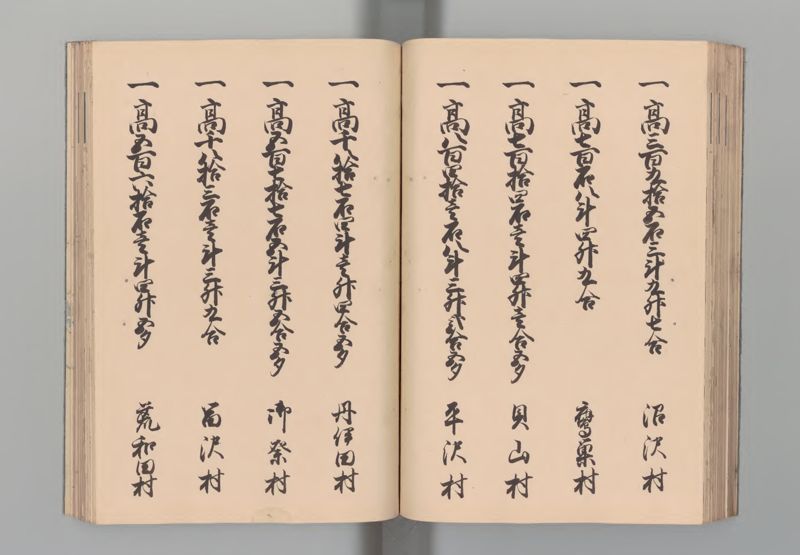 一 高三百九拾五石三斗九升七合 沼沢村
一 高七百石八斗四升九合 鷹巣村
一 高七百拾四石壱斗四升壱合五夕 貝山村
一 高八百四拾壱石八斗三升弐合五夕 平沢村
一 高十八拾七石四斗壱升四合五夕 丹伊田村
一 高五百七拾七石五斗三升五合五夕 御祭村
一 高十八拾三石壱斗三升九合 富沢村
一 高五百六拾石壱斗四升五夕 荒和田村